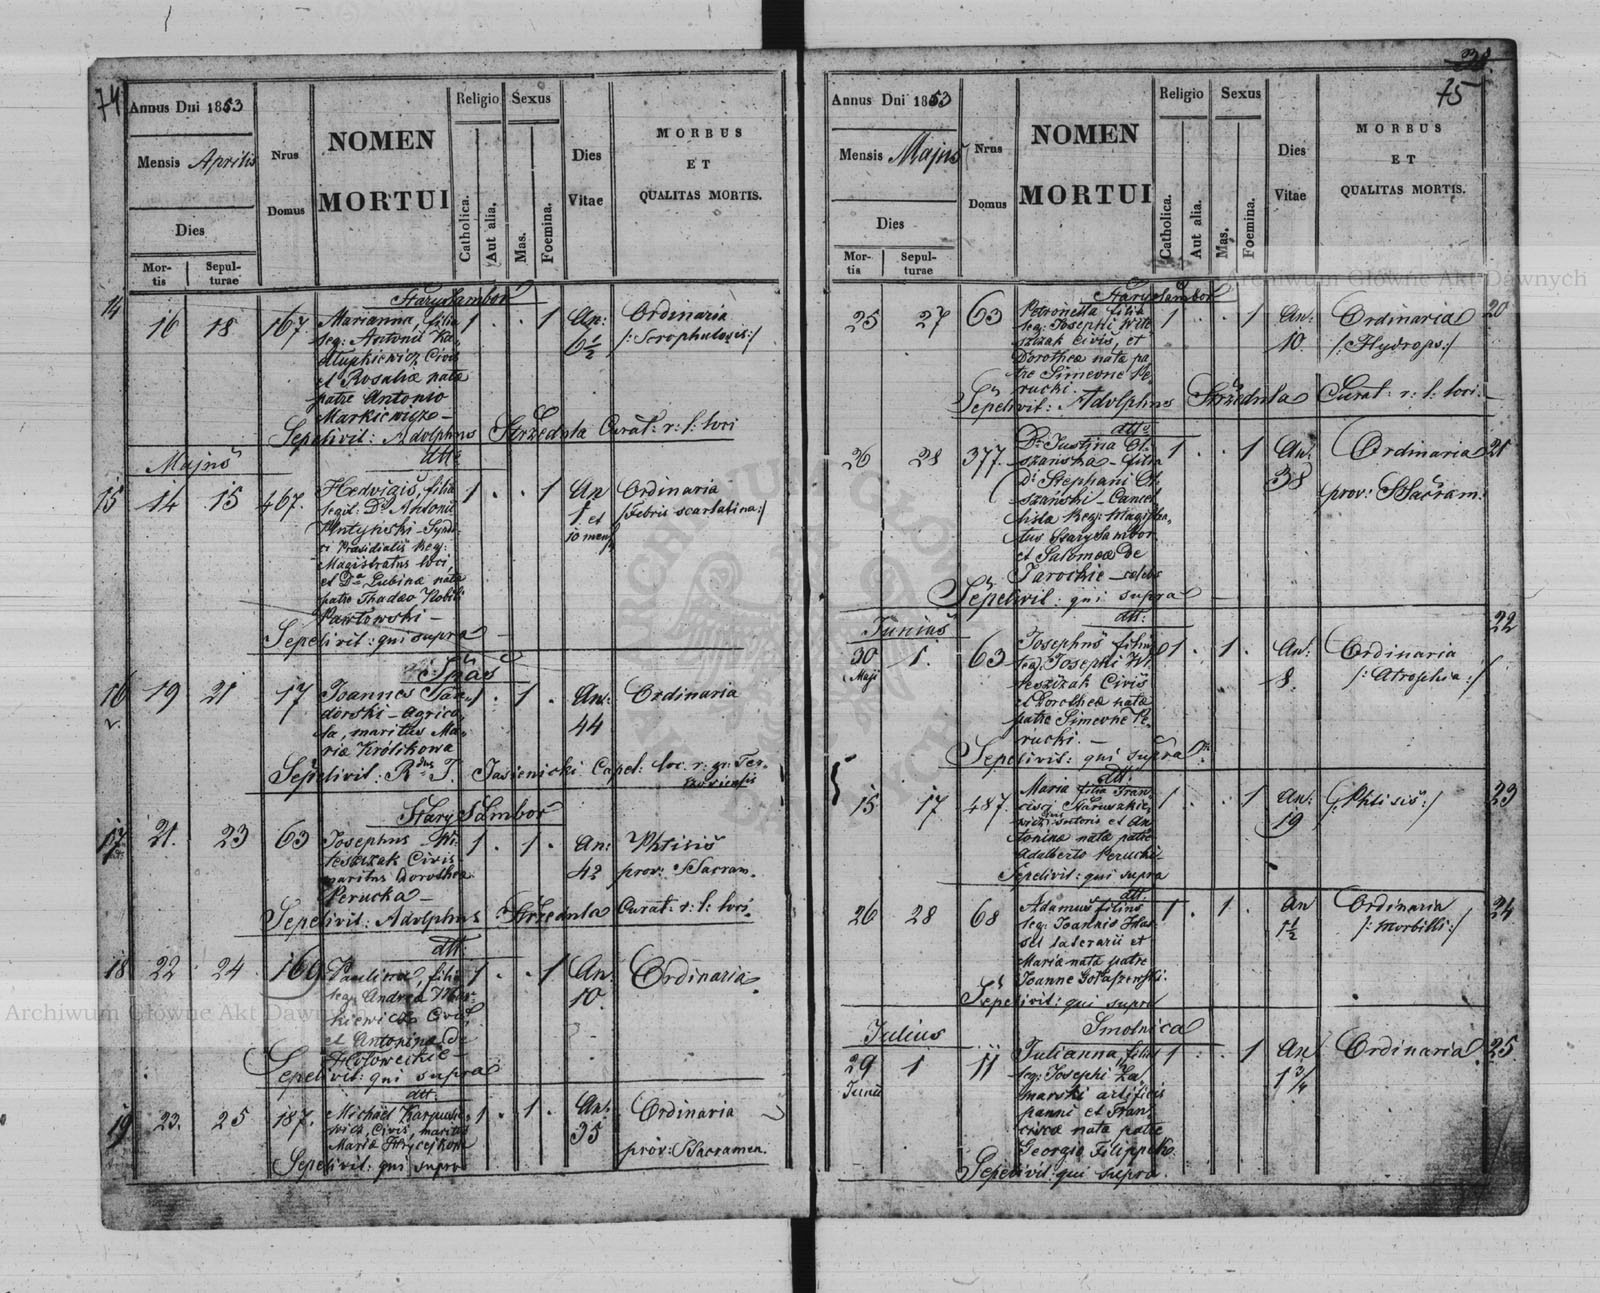 74
Annus Dni 1853
Mensis Aprilis
Dies
Mor-
tis
Sepul-
turae
Nrus
Domus
NOMEN
MORTUI
Religio
Catholica.
Aut alia.
Sexus
Mas.
Foemina.
Dies
Vitae
MORBUS
ET
QUALITAS MORTIS.
Stary Sambor
14 16 18 167 Marianna, filia 1 . . 1 An: Ordinaria
leg: Antonii
6½ /: Scrophulosis :/
Civis
et Rosaliæ nata
patre Antonio
Markiewicz
Sepelivit: Adolphus Strzednla Curat: r: l: loci
Majus
dtto
15 14 15 467. Hedvigis, filia 1 . . 1 An Ordinaria
legit: Di Antonii 1. et /Febris scarlatina:/
Syndi- 10 mens
ci Præsidialis Reg:
Magistratus loci,
et Da Lubinæ nata
patre Thadæo Nobili
Pawłowski –
Sepelivit: qui supra
16 19 21 17 Joannes 1 . 1 . An: Ordinaria
dorski – Agrico- 44
la, maritus Ma-
riæ Królikowa
Sepelivit: Rdus J. Jasienicki Capel: loc. r: gr: Ter-
Stary Sambor
17 21. 23 63 Josephus Wi- 1 . 1 . An: Phtisis
teszczak Civis 42 prov: SSacram.
maritus Dorothea
Perucka –
Sepelivit: Adolphus Strzednla Curat: r: l: loci.
dtt:
18 22 24 169 Paulina, filia 1 . . 1 An: Ordinaria.
leg: Andreæ 10.
kiewicz Civis
et Antonina de
Hołoweckie –
Sepelivit: qui supra
dtt:
19 23. 25 187. Michael 1 . 1 . An: Ordinaria
wicz, Civis, maritus 35
Mariæ prov: SSacramen.
Sepelivit: qui supra
38
75
Annus Dni 1853
Mensis Majus
Dies
Mor-
tis
Sepul-
turae
Nrus
Domus
NOMEN
MORTUI
Religio
Catholica.
Aut alia.
Sexus
Mas.
Foemina.
Dies
Vitae
MORBUS
ET
QUALITAS MORTIS.
Stary Sambor
25 27 63 Petronella filia 1 . . 1 An: Ordinaria 20
leg: Josephi Wite- 10. /:Hydrops:/
szczak Civis, et
Dorotheæ nata pa-
tre Simeone Pe-
rucki.
Sepelivit: Adolphus Strzednla Curat: r: l: loci.
dtto
26 28 377. Da Justina 1 . . 1 An: Ordinaria 21
filia 38
Di Stephani prov: SSacram:
Cancel-
lista Reg: Magistra-
tus Stary Sambor
et Salomeæ De
Jarockie – celebs
Sepelivit: qui supra
Junius
dtt:
30 1. 63 Josephus filius 1 . 1 . An: Ordinaria 22
Maji leg: Josephi Wi- 8. /:Atrophia:/
teszczak Civis
et Dorotheæ nata
patre Simeone Pe-
rucki. –
Sepelivit: qui supra
dtt:
15 17 487. Maria filia Fran- 1 . . 1 An: /:Phtisis:/ 23
cisci 19
sutoris et An-
toninæ nata patre
Adalberto Perucki
Sepelivit: qui supra
dtt:
26 28 68 Adamus filius 1 . 1 . An Ordinaria 24
leg: Joannis 1½ /:Morbilli:/
et
Maria nata patre
Joanne
Sepelivit: qui supra
Julius
Smolnica
29 1 11 Julianna, filia 1 . . 1 An Ordinaria. 25
Junii leg: Josephi Za- 1¾
marski artificis
panni et Fran-
ciscæ nata patre
Georgio Filippek.
Sepelivit: qui supra.
Archiwum Główne Akt Dawnych
Archiwum Główne Akt Dawnych